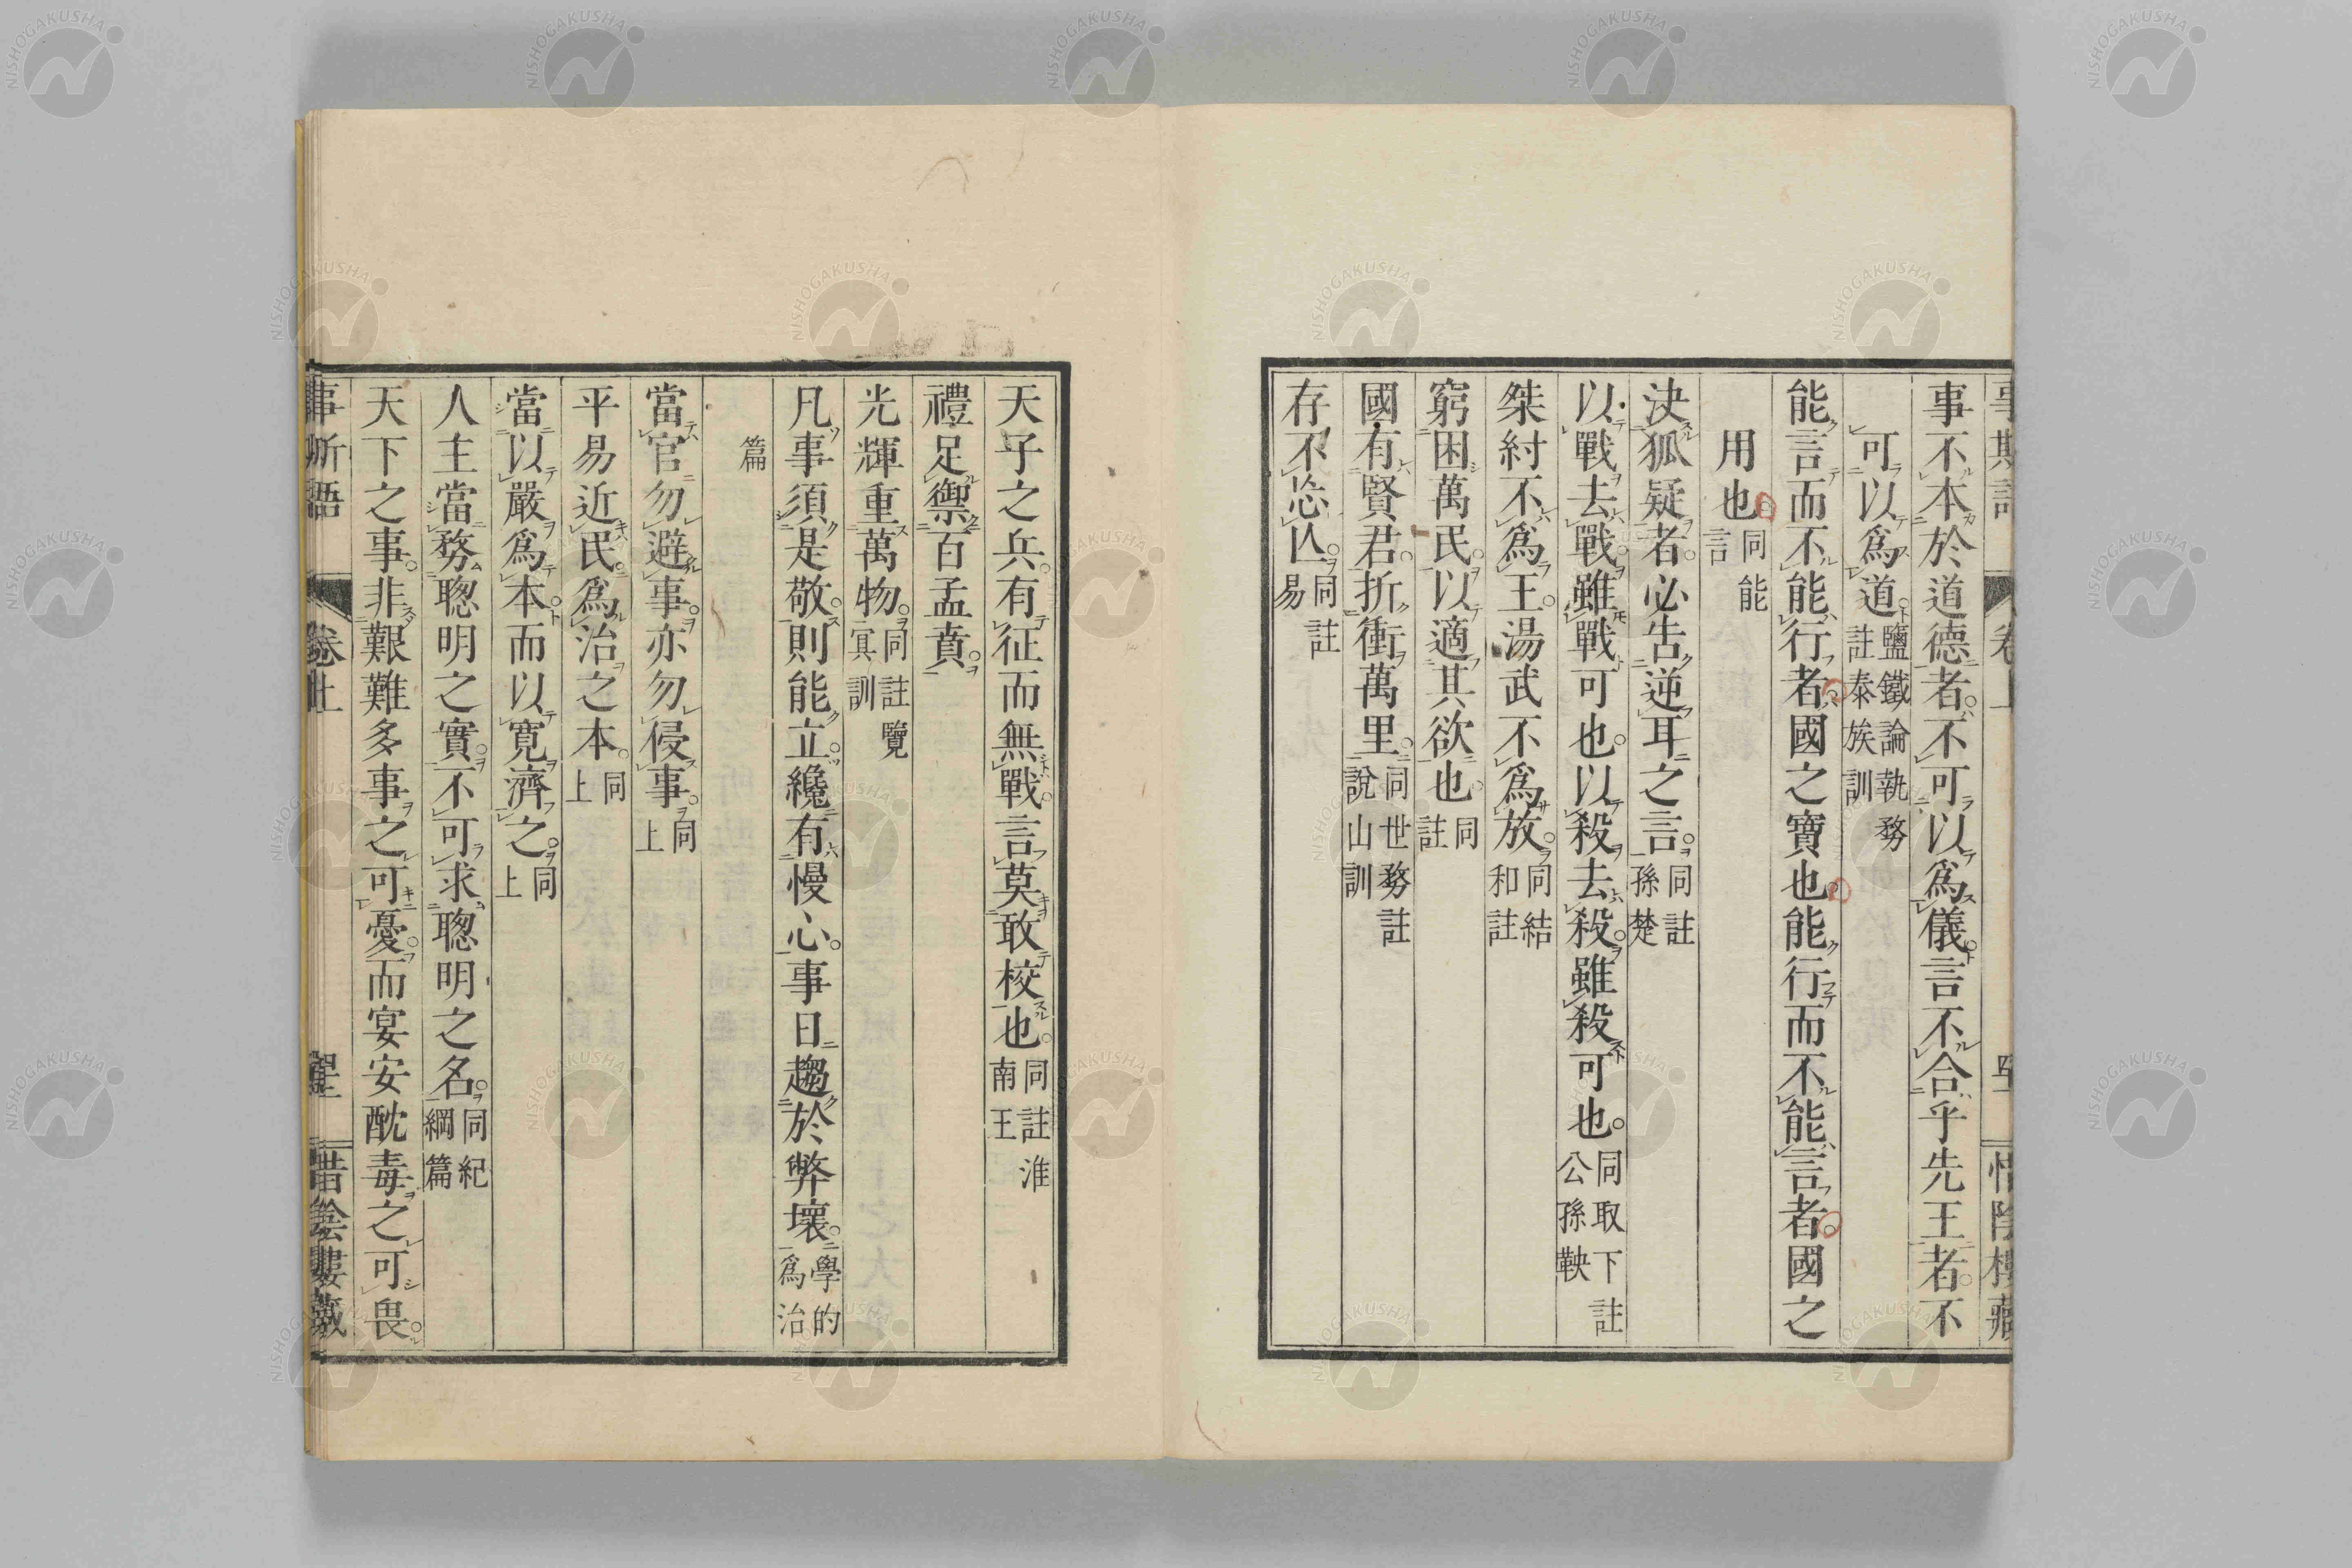 事不本於道德者不可以爲儀言不合乎先王者不
可以爲道鹽鐵論執務註泰族訓
能言而不能行者國之寶也能行而不能言者國之
用也同能言
決狐疑者必告逆耳之言同註孫楚
以戰去戰雖戰可也以殺去殺雖殺可也同取下註公孫鞅
桀紂不爲王湯武不爲放同結和註
窮困萬民以適其欲也同註
國有賢君折衝萬里同世務註說山訓
存不忘亾同註易
天子之兵有征而無戰言莫敢校也同註淮南王
禮足禦百孟賁
光輝重萬物同註覽冥訓
凡事須是敬則能立纔有慢心事日趨於弊壞學的爲治
篇
當官勿避事亦勿侵事同上
平易近民爲治之本同上
當以嚴爲本而以寬濟之同上
人主當務聰明之實不可求聰明之名同紀綱篇
天下之事非艱難多事之可憂而宴安酖毒之可畏